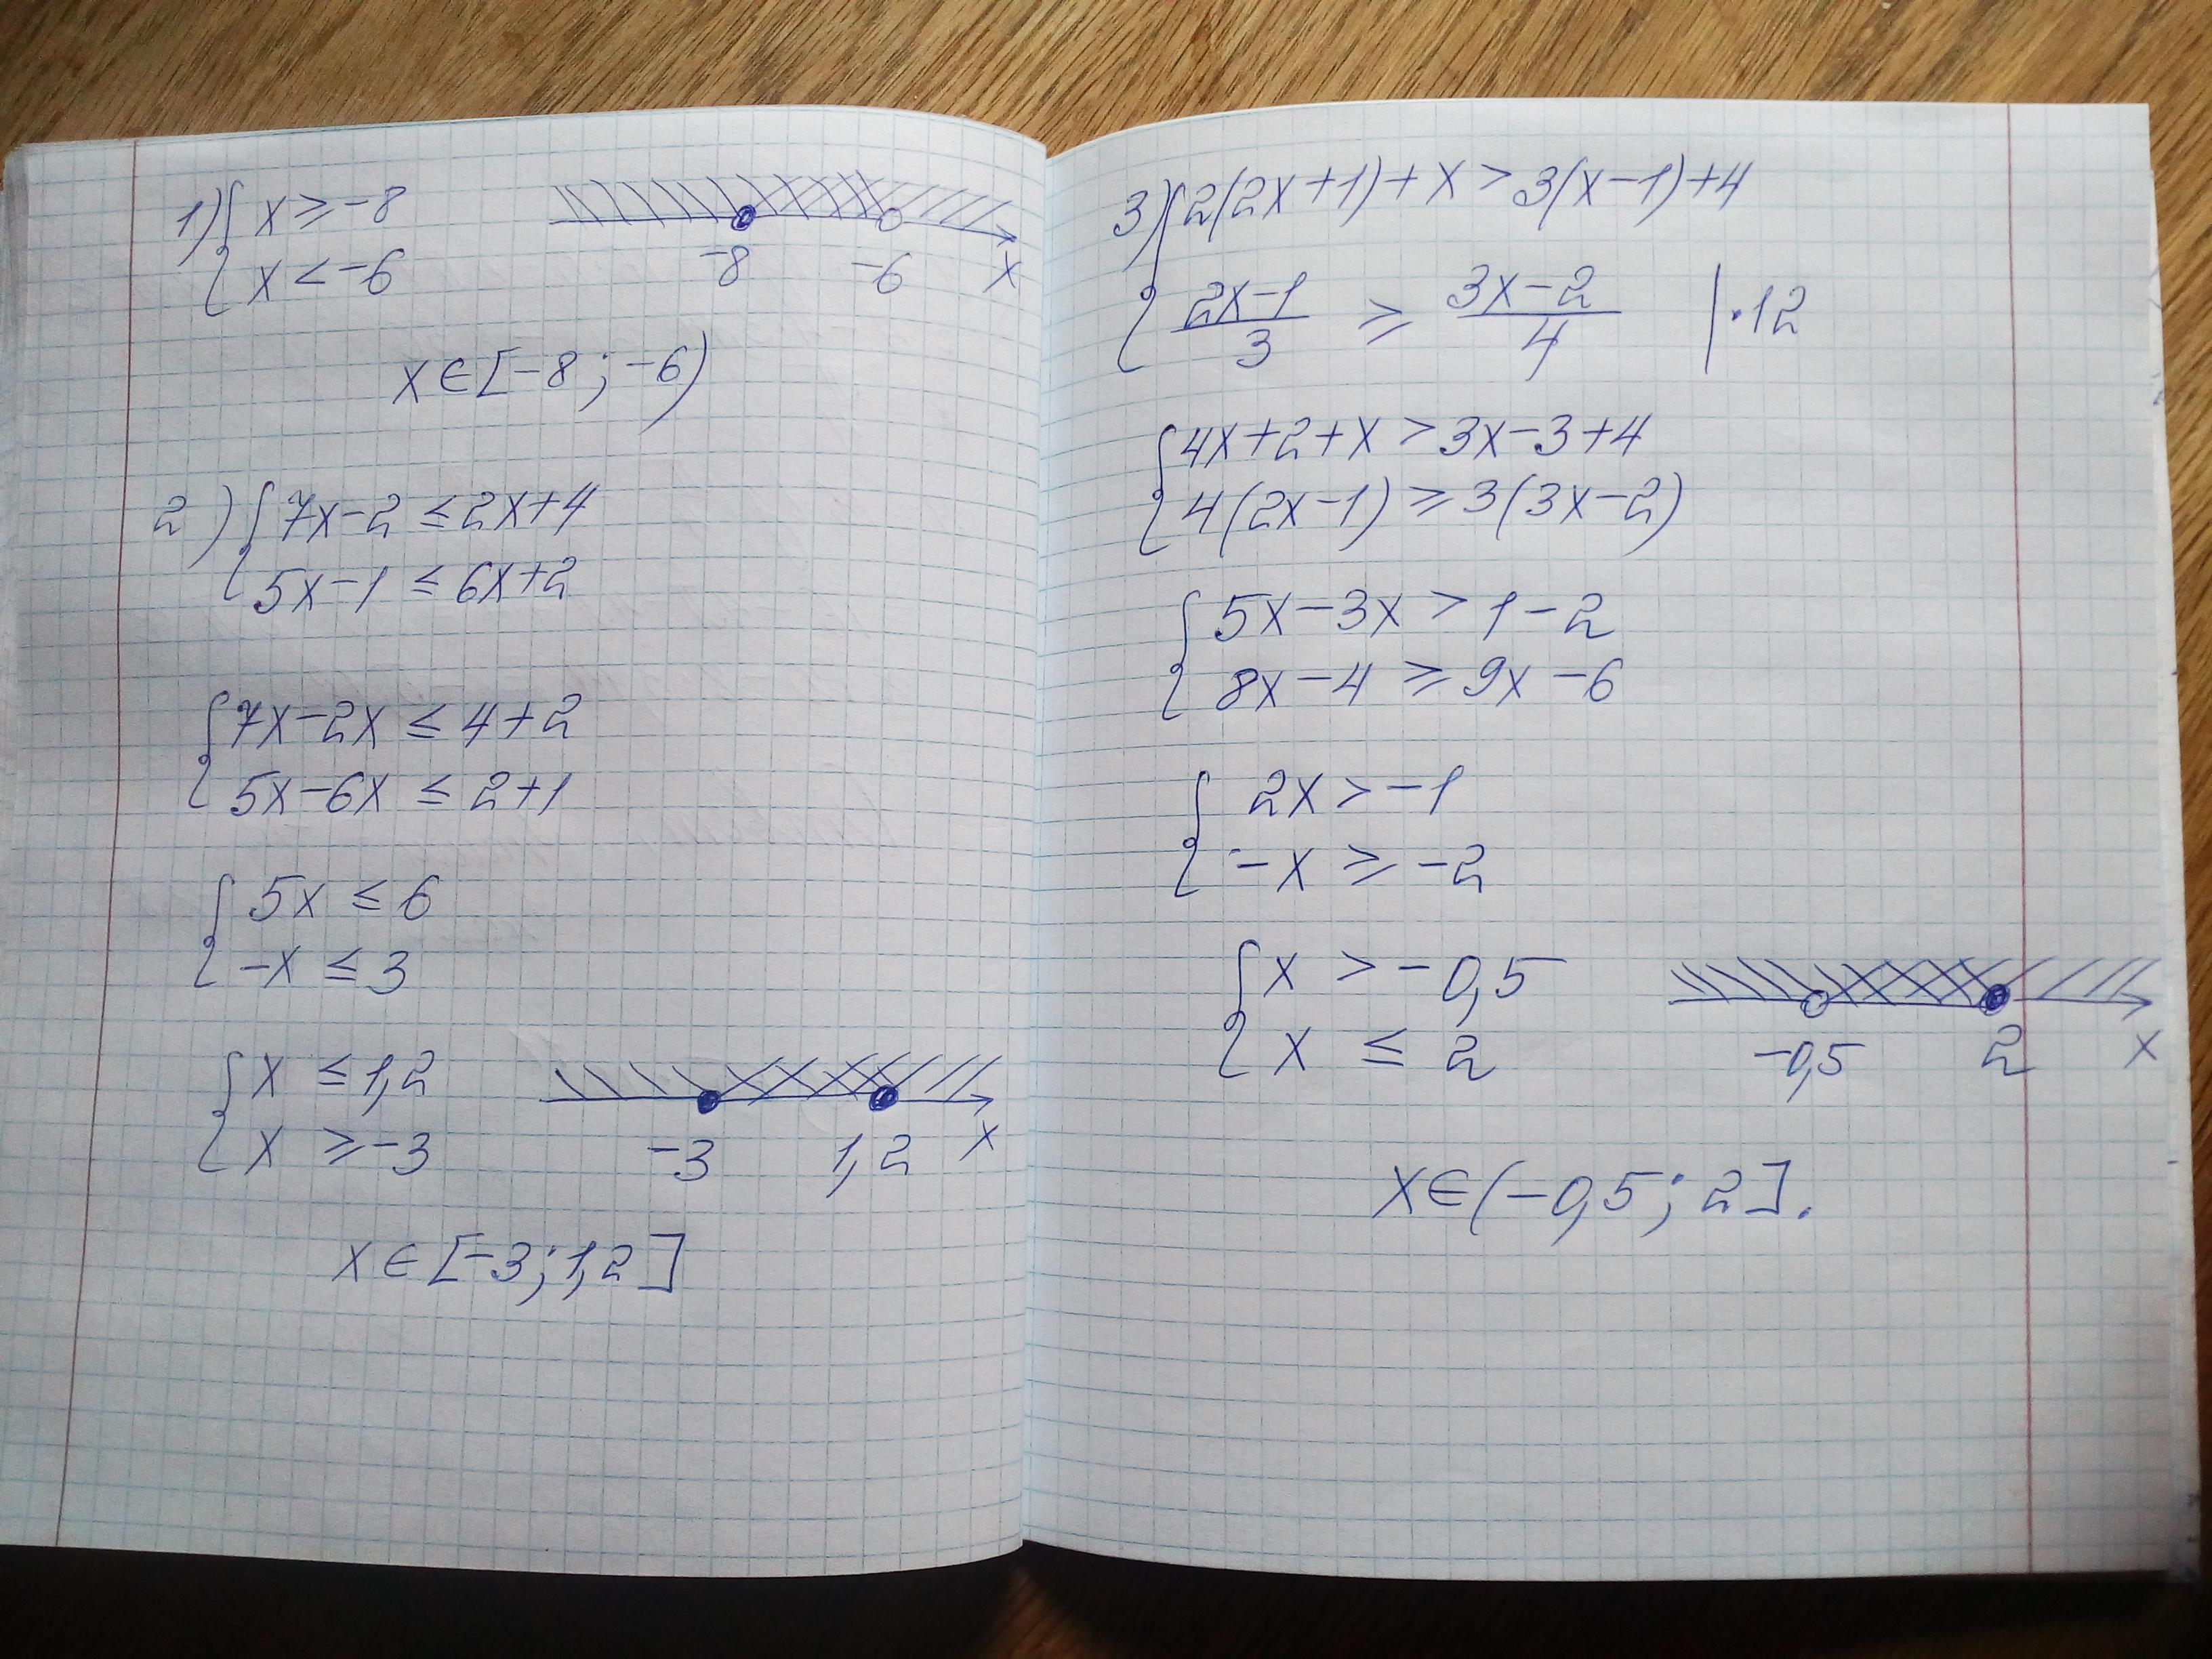 1) { x ≥ -8
x < -6
-8 -6 x
x ∈ [-8; -6)
2) { 7x-2 ≤ 2x+4
5x-1 ≤ 6x+2
{ 7x-2x ≤ 4+2
5x-6x ≤ 2+1
{ 5x ≤ 6
-x ≤ 3
{ x ≤ 1,2
x ≥ -3
-3 1,2 x
x ∈ [-3; 1,2]
3) { 2(2x+1)+x > 3(x-1)+4
(2x-1)/3 ≥ (3x-2)/4 | ·12
{ 4x+2+x > 3x-3+4
4(2x-1) ≥ 3(3x-2)
{ 5x-3x > 1-2
8x-4 ≥ 9x-6
{ 2x > -1
-x ≥ -2
{ x > -0,5
x ≤ 2
-0,5 2 x
x ∈ (-0,5; 2].